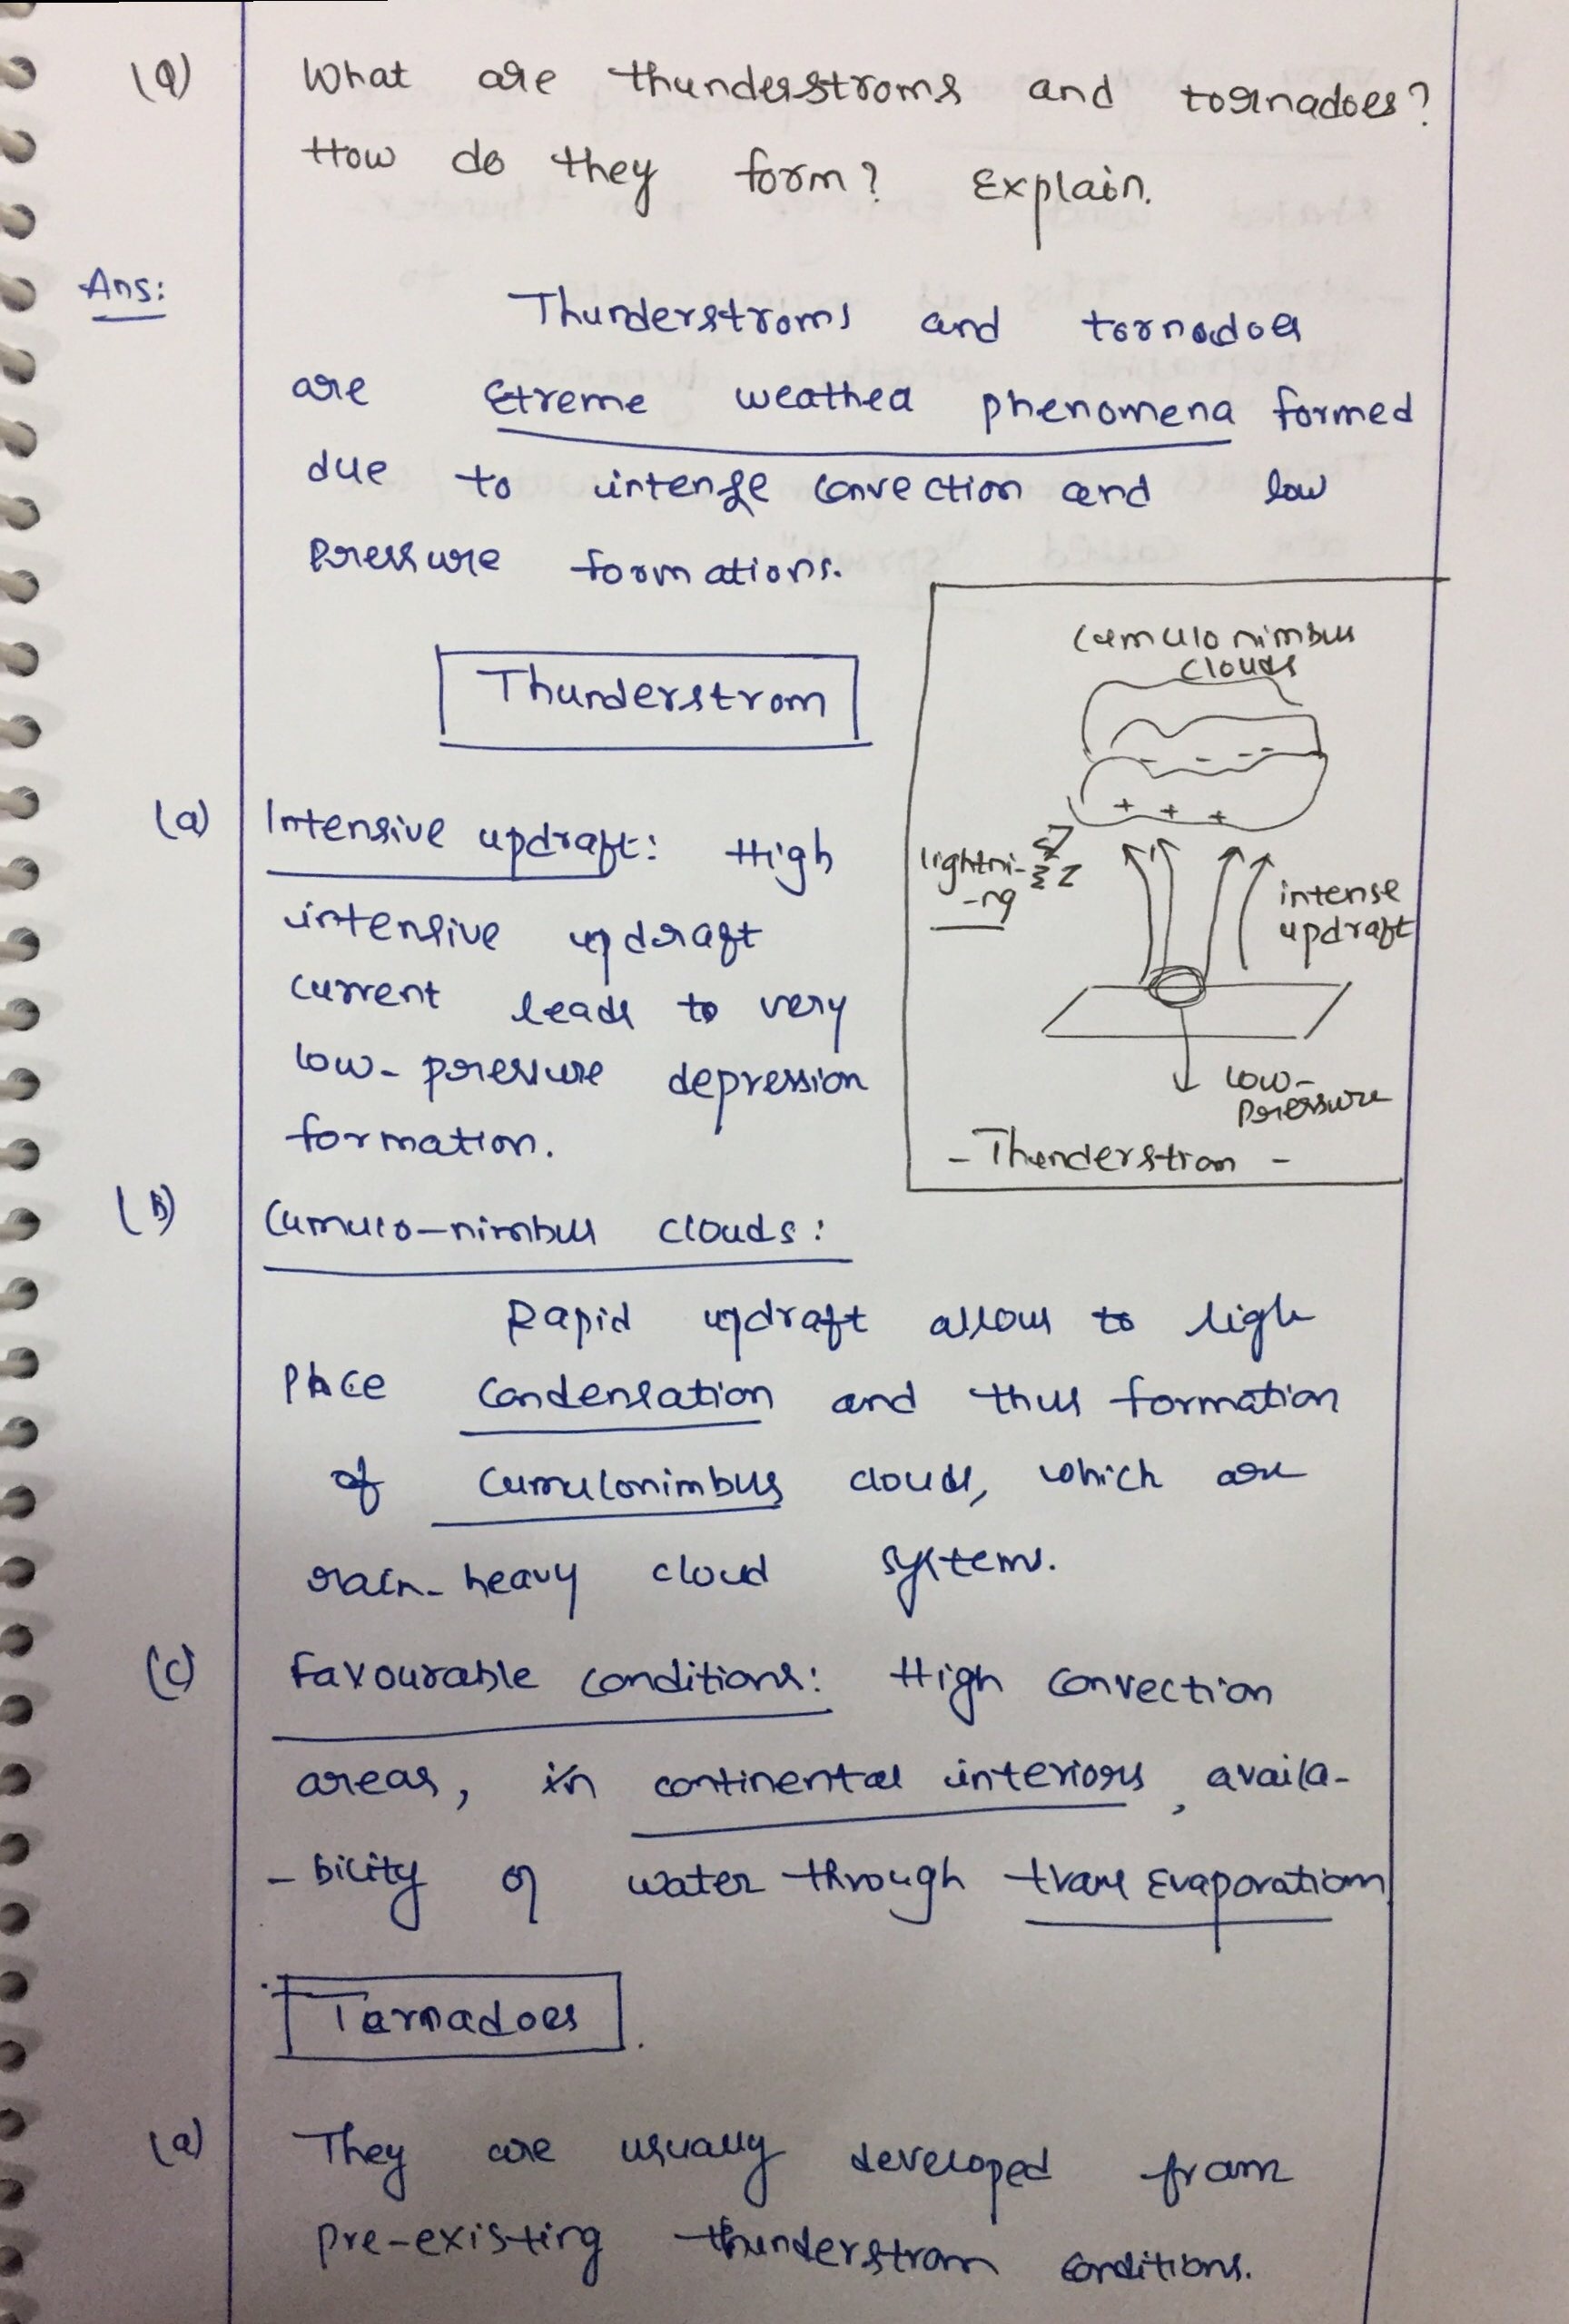 (Q) What are thunderstroms and tornadoes?
How do they form? Explain.
Ans: Thunderstroms and tornadoes
are Etreme weathea phenomena formed
due to intense convection and low
pressure formations.
Thunderstrom
(a) Intensive updraft: High
intensive updraft
current leads to very
low-pressure depression
formation.
Cumulo nimbus
clouds
- - - -
+ + +
lightni-
-ng
intense
updraft
low-
pressure
- Thunderstrom -
(b) Cumulo-nimbus clouds:
Rapid updraft allows to high
place condensation and thus formation
of cumulonimbus clouds, which are
rain-heavy cloud systems.
(c) Favourable conditions: High convection
areas, in continental interiors, availa-
-bility of water through trans Evaporation
Tornadoes
(a) They are usually developed from
pre-existing thunderstrom conditions.